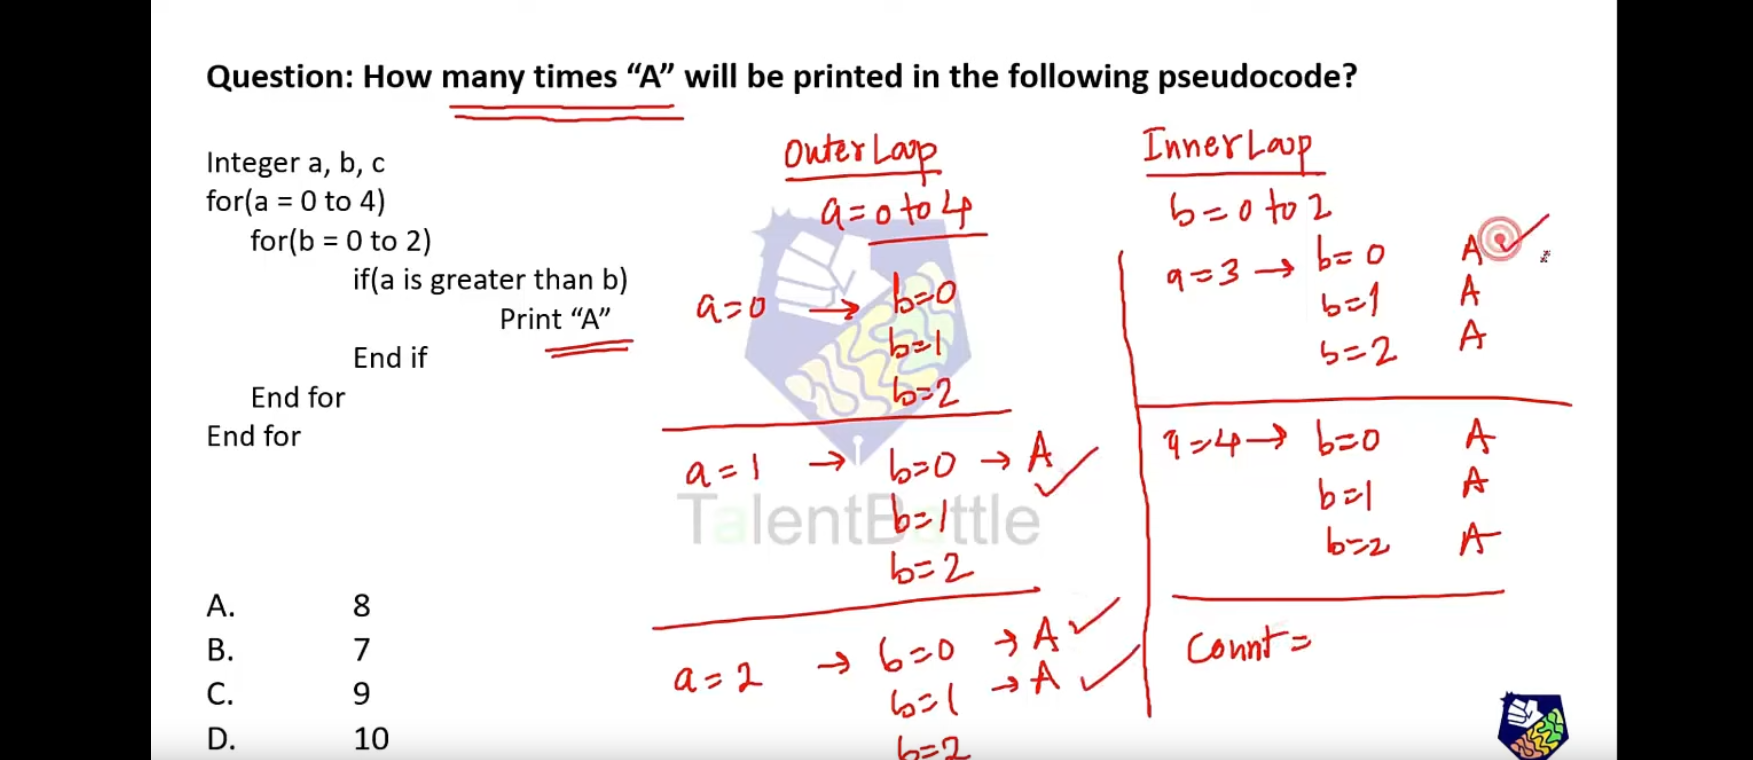 Question: How many times “A” will be printed in the following pseudocode?
Integer a, b, c
for(a = 0 to 4)
for(b = 0 to 2)
if(a is greater than b)
Print “A”
End if
End for
End for
A. 8
B. 7
C. 9
D. 10
Outer Loop
a = 0 to 4
a=0 → b=0
b=1
b=2
a=1 → b=0 → A ✓
b=1
b=2
a=2 → b=0 → A ✓
b=1 → A ✓
b=2
Inner Loop
b = 0 to 2
a=3 → b=0 A ✓
b=1 A
b=2 A
a=4 → b=0 A
b=1 A
b=2 A
Count =
TalentBattle